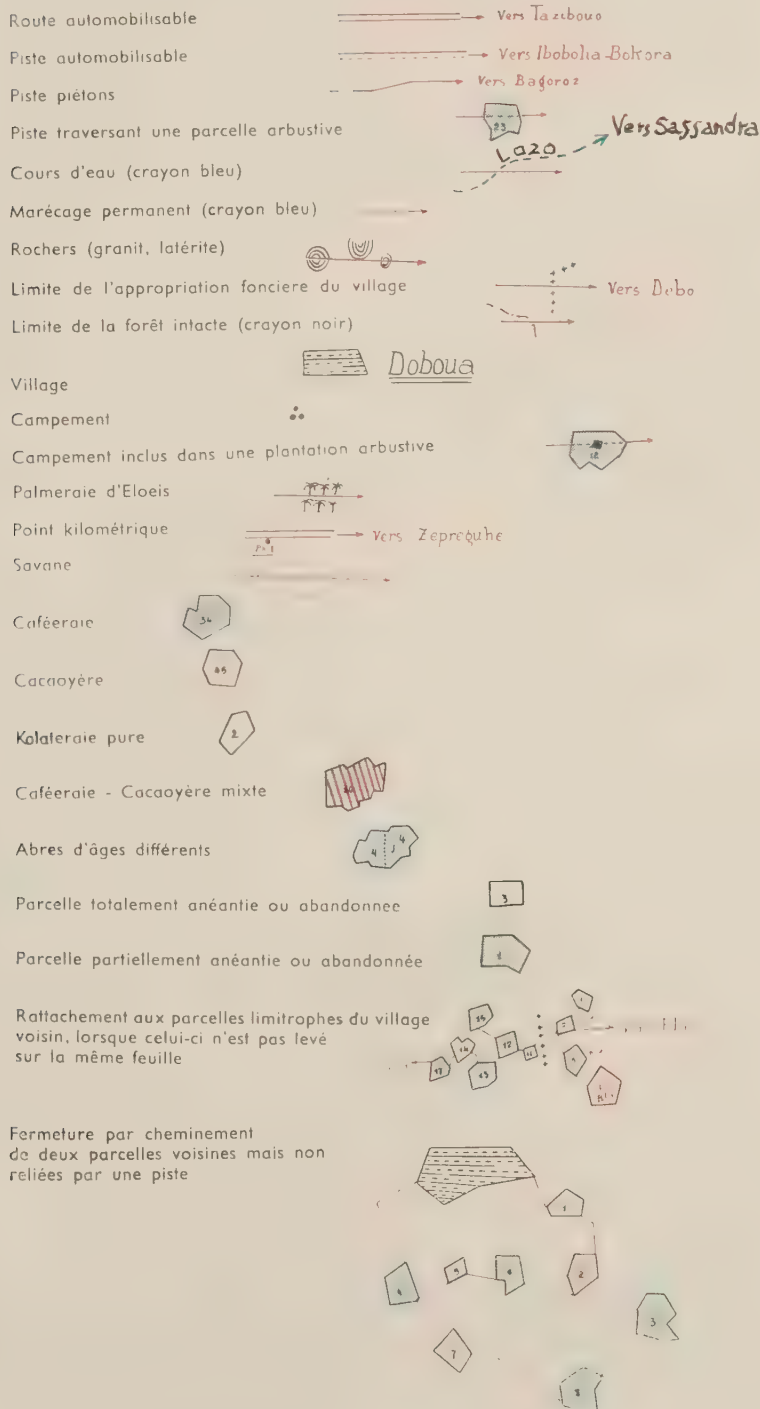 Route automobilisable Vers Tazibouo
Piste automobilisable Vers Ibobolia-Bokora
Piste piétons Vers Bagoroz
Piste traversant une parcelle arbustive 23
Vers Sassandra
Lazo
Cours d'eau (crayon bleu)
Marécage permanent (crayon bleu)
Rochers (granit, latérite)
Limite de l'appropriation fonciere du village Vers Debo
Limite de la forêt intacte (crayon noir) 1
Village Doboua
Campement
Campement inclus dans une plantation arbustive 12
Palmeraie d'Eloeis
Point kilométrique Vers Zepreguhe
Savane
Caféeraie 34
Cacaoyère
Kolateraie pure 2
Caféeraie - Cacaoyère mixte
Abres d'âges différents 4 4
Parcelle totalement anéantie ou abandonnee 3
Parcelle partiellement anéantie ou abandonnée 1
Rattachement aux parcelles limitrophes du village
voisin, lorsque celui-ci n'est pas levé
sur la même feuille
15
14 12 11
17 13
Fermeture par cheminement
de deux parcelles voisines mais non
reliées par une piste
1
5 6 2
4
3
7
8